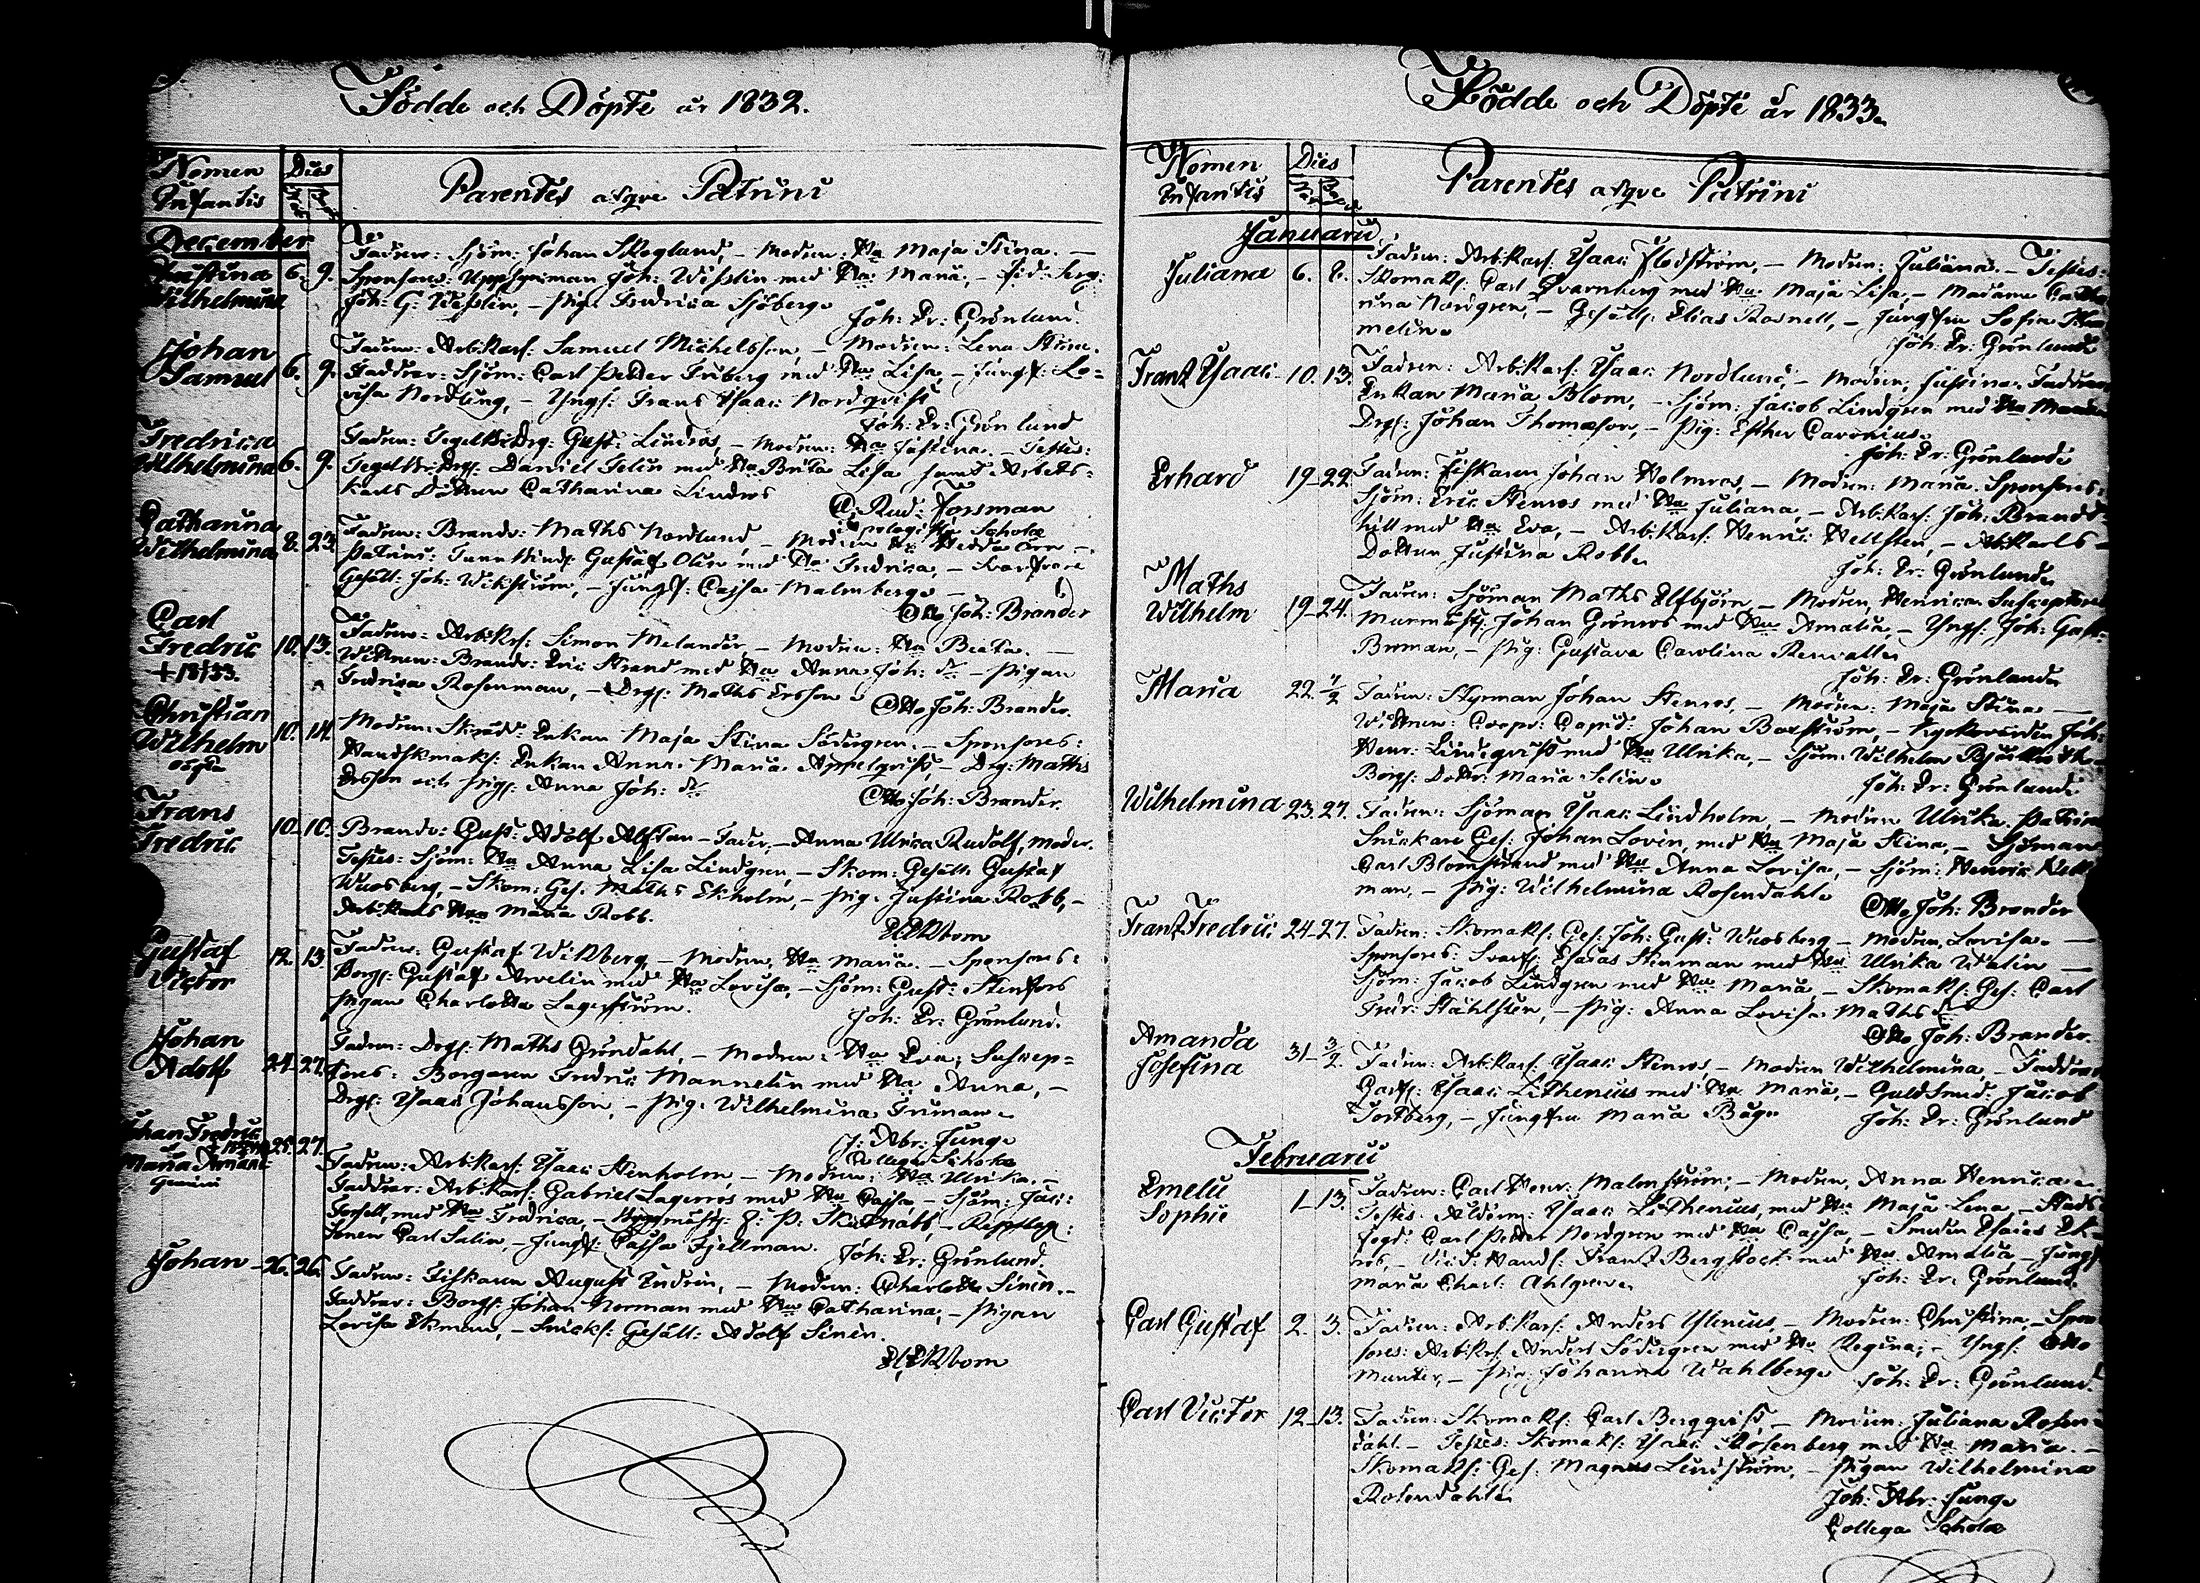 Födde och Döpte år 1832.
Nomen Infantis
Dies
Parentes atque Patrini
December
Christina Wilhelmina 6. 9.
Fadren: Sjöm: Johan Skoglund, – Modren: Hu Maja Stina. –
Sponsores: Uppsyniman Joh: Wisslin med Hu Maria, –
Joh: G: Wisslin, – Pig: Fredrica Sjöberg.
Joh: Er: Grönlund.
Johan Samuel 6. 9.
Fadren: Arb:Karl: Samuel Michelsson, – Modren: Lena Stina.
Faddrar: Sjöm: Carl Petter Friberg med Hu Lisa, – Jungf: Lo=
visa Nordling, – Yngl: Frans Isaac Nordqvist
Joh: Er: Grönlund
Fredrica Wilhelmina 6. 9.
Fadren: Gust: Lindros, – Modren: Hu Justina. – Testes:
Daniel Felin med Hu Brita Lisa samt Arbets=
karls Dottren Catharina Lindros
C: Rud: Forsman
Apologista Scholæ
Catharina Wilhelmina 8. 23.
Fadren: Brandv: Maths Nordlund, – Modren Hu Hedda Orn –
Patrini: Gustaf Olin med Hu Fredrica, – Svarfvare
Gesäll: Joh: Wikström, – Jungf: Cajsa Malmberg. –
Otto Joh: Brander
Carl Fredric 10. 13.
Fadren: Arb:Karl: Simon Melander, – Modren: Hu Beata. –
Wittnen: Brandv: Eric Strand med Hu Anna Joh: dr – Pigan
Fredrica Rosenman, – Drgs: Maths Ersson
Otto Joh: Brander.
Christian Wilhelm 10. 14.
Modren: Skrädd: Enkan Maja Stina Södergren. – Sponsores:
Handskmaks: Enkan Anna Maria Appelqvist, – Drg: Maths
Ersson och Pig: Anna Joh: dr
Otto Joh: Brander.
Frans Fredric 10. 10.
Brandv: Gust: Adolf Alftan – Fader, – Anna Ulrica Rudolf, Moder.
Testes: Sjöm: Hu Anna Lisa Lindgren, – Skom: Gesäll: Gustaf
Wuosberg, – Skom: Ges: Maths Ekholm, – Pig: Justina Robb, –
Arb:Karls Hu Maria Robb.
Gustaf Victor 12. 13.
Fadren: Gustaf Wikberg, – Modren, Hu Maria. – Sponsores:
Borg: Gustaf Arvelin med Hu Lovisa, – Sjöm: Gust: Stenfors
Pigan Charlotta Lagerström.
Joh: Er: Grönlund.
Johan Adolf 24. 27.
Fadren: Drgs: Maths Gröndahl, – Modren: Hu Eva; Suscep=
tores: Borgaren Fredric Mannelin med Hu Anna, –
Drgs: Isaac Johansson, – Pig: Wilhelmina Friman.
J: Abr: Junge
Collega Scholæ
Johan Fredric
Maria Amanda
Gemini 25. 27.
Fadren: Arb:Karl: Isaac Stenholm, – Modren: Hu Ulrika. –
Faddrar: Arb:Karl: Gabriel Lagerros med Hu Cajsa – Sjöm: Jac:
Forsell, med Hu Fredrica, –
sonen Carl Salin, – Jungf: Cajsa Fjellman.
Joh: Er: Grönlund.
Johan 26. 26.
Fadren: Fiskaren August Endrin, – Modren: Charlotta Sinin. –
Faddrar: Borg: Johan Norman med Hu Catharina, – Pigan
Lovisa Ekman, – Snick: Gesäll: Adolf Sinin.
Födde och Döpte år 1833.
Nomen Infantis
Dies
Parentes atque Patrini
Januarii
Juliana 6. 8.
Fadren: Arb:Karl: Isaac Flodström, – Modren: Juliana. – Testes:
Skomak: Carl Qvarnberg med Hu: Maja Lisa, – Madame Catha
rina Nordgren, – Gesäll: Elias Rosnell, – Jungfru Sofia
melin.
Joh: Er: Grönlund.
Frantz Isaac 10. 13.
Fadren: Arb:Karl: Isaac Nordlund, – Modren, Justina. Faddrar,
Enkan Maria Blom, – Sjöm: Jacob Lindgren med Hu Maria
Drgs: Johan Thomasson, – Pig: Esther Caronius.
Joh: Er: Grönlund.
Erhard 19. 22.
Fadren: Fiskaren Johan Holmros, – Modren: Maria. Sponsores:
Sjöm: Eric Stenros med Hu Juliana, – Arb:Karl: Joh: Brandt
hill med Hu Eva, – Arb:Karl: Henric Hellsten, – Arb:karls –
Dottren Justina Robb.
Joh: Er: Grönlund.
Maths Wilhelm 19. 24.
Fadren: Sjöman Maths Elfbjörn, – Modren, Henrica. Susceptores
Murmäst: Johan Grönros med Hu Amalia, – Yngl: Joh: Gust:
Broman, – Pig: Gustava Carolina Renvall.
Joh: Er: Grönlund.
Maria 22. 1/2
Fadren: Styrman Johan Stenros, – Modren: Maja Stina –
Wittnen: Coopv: Capit: Johan Boxström, – Kyckoverden Joh:
Henr: Lindeqvist med Hu Ulrika, – Sjöm: Wilhelm
Borg: Dottr: Maria Selin.
Joh: Er: Grönlund.
Wilhelmina 23. 27.
Fadren: Sjöman Isaac Lindholm, – Modren Ulrika. Patrini
Snickare Ges: Johan Lovin, med Hu Maja Stina, – Sjöman
Carl Blomstrand med Hu Anna Lovisa, – Sjöm: Henric
man, – Pig: Wilhelmina Rosendahl.
Otto Joh: Brander
Frantz Fredric 24. 27.
Fadren: Skomaks: Ges: Joh: Gust: Wuosberg – Modren, Lovisa. –
Sponsores: Svarf: Esaias Stenman med Hu Ulrika Walin –
Sjöm: Jacob Lindgren med Hu Maria – Skomaks: Ges: Carl
Fredr: Ståhlsten, – Pig: Anna Lovisa Maths dr
Otto Joh: Brander.
Amanda Josefina 31. 3/2.
Fadren: Arb:Karl: Isaac Stenros, – Modren Wilhelmina, – Faddrar
Garf: Isaac Lithenius med Hu Maria, – Guldsmed: Jacob
Tortberg, – Jungfru Maria Båge
Joh: Er: Grönlund
Februarii
Emelie Sophie 1. 13.
Fadren: Carl Henr: Malmström, – Modren, Anna Henrica.
Testes: Ålderm: Isaac Lithenius, med Hu Maja Lena, – Stads=
fogd: Carl Petter Nordgren med Hu Cajsa, – Smeden Esaias Ek=
ros, – Vict: Handl: Frantz Bergstock med Hu Amalia – Jungf
Maria Charl: Ahlgren.
Joh: Er: Grönlund.
Carl Gustaf 2. 3.
Fadren: Arb:Karl: Anders Ylenius, – Modren: Christina, – Spon=
sores: Arb:Karl: Anders Södergren med Hu Regina; – Yngl: Otto
Munter, – Pig: Johanna Wahlberg.
Joh: Er: Grönlund.
Carl Victor 12. 13.
Fadren: Skomaks: Carl Bergqvist, – Modren: Juliana Rosen=
dahl. – Testes: Skomaks: Isaac Rosenberg med Hu Maria. –
Skomaks: Ges: Magnus Lindström, – Pigan Wilhelmina
Rosendahl.
Joh: Abr: Junge
Collega Scholæ